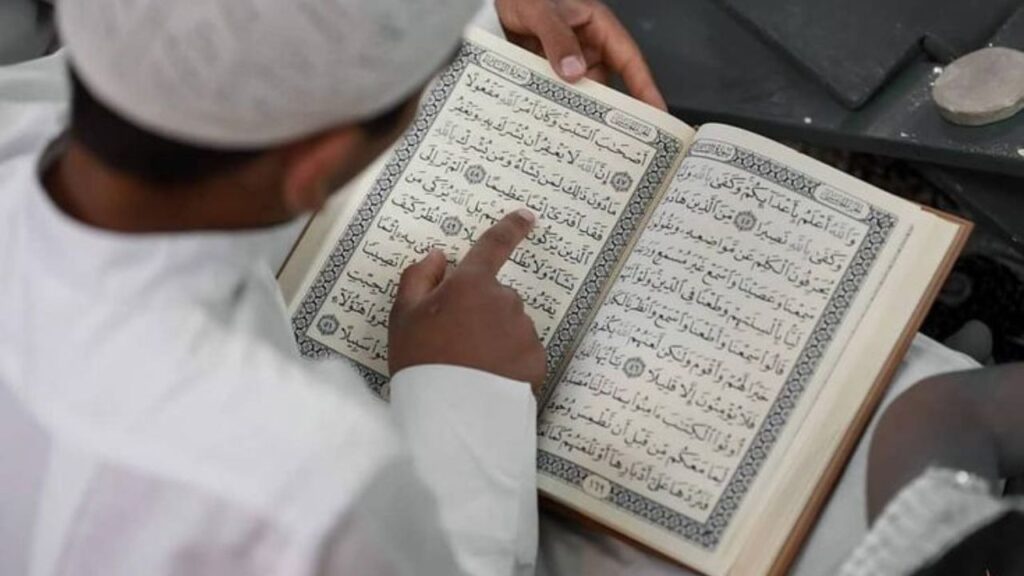 وَٱللَّهُ أَعْلَمُ بِأَعْدَآئِكُمْ وَكَفَىٰ
وَكَفَىٰ بِٱللَّهِ نَصِيرًا ٤٥ مِّنَ ٱلَّذِينَ هَادُوا۟
يُحَرِّفُونَ ٱلْكَلِمَ عَن مَّوَاضِعِهِۦ وَيَقُولُونَ
سَمِعْنَا وَعَصَيْنَا وَٱسْمَعْ غَيْرَ مُسْمَعٍ وَرَٰعِنَا
لَيًّۢا بِأَلْسِنَتِهِمْ وَطَعْنًا فِى ٱلدِّينِ وَلَوْ أَنَّهُمْ
قَالُوا۟ سَمِعْنَا وَأَطَعْنَا وَٱسْمَعْ وَٱنظُرْنَا لَكَانَ
خَيْرًا لَّهُمْ وَأَقْوَمَ وَلَٰكِن لَّعَنَهُمُ ٱللَّهُ بِكُفْرِهِمْ
فَلَا يُؤْمِنُونَ إِلَّا قَلِيلًا ٤٦ يَٰٓأَيُّهَا ٱلَّذِينَ
أُوتُوا۟ ٱلْكِتَٰبَ ءَامِنُوا۟ بِمَا نَزَّلْنَا مُصَدِّقًا
لِّمَا مَعَكُم مِّن قَبْلِ أَن نَّطْمِسَ وُجُوهًا
فَنَرُدَّهَا عَلَىٰٓ أَدْبَارِهَآ أَوْ نَلْعَنَهُمْ كَمَا
أَصْحَٰبَ ٱلسَّبْتِ وَكَانَ أَمْرُ ٱللَّهِ مَفْعُولًا
٤٧ إِنَّ ٱللَّهَ لَا يَغْفِرُ أَن يُشْرَكَ بِهِۦ وَيَغْفِرُ
مَا دُونَ ذَٰلِكَ لِمَن يَشَآءُ وَمَن يُشْرِكْ بِٱللَّهِ
فَقَدِ ٱفْتَرَىٰٓ إِثْمًا عَظِيمًا ٤٨ أَلَمْ تَرَ إِلَى
ٱلَّذِينَ يُزَكُّونَ بَلِ ٱللَّهُ يُزَكِّى مَن
يَشَآءُ وَلَا يُظْلَمُونَ ٤٩ ٱنظُرْ كَيْفَ
يَفْتَرُونَ بِهِۦٓ إِثْمًا
نَصِيبًا
ٱلْجِبْتِ
هَٰٓؤُلَآءِ
سَبِيلًا ٥١